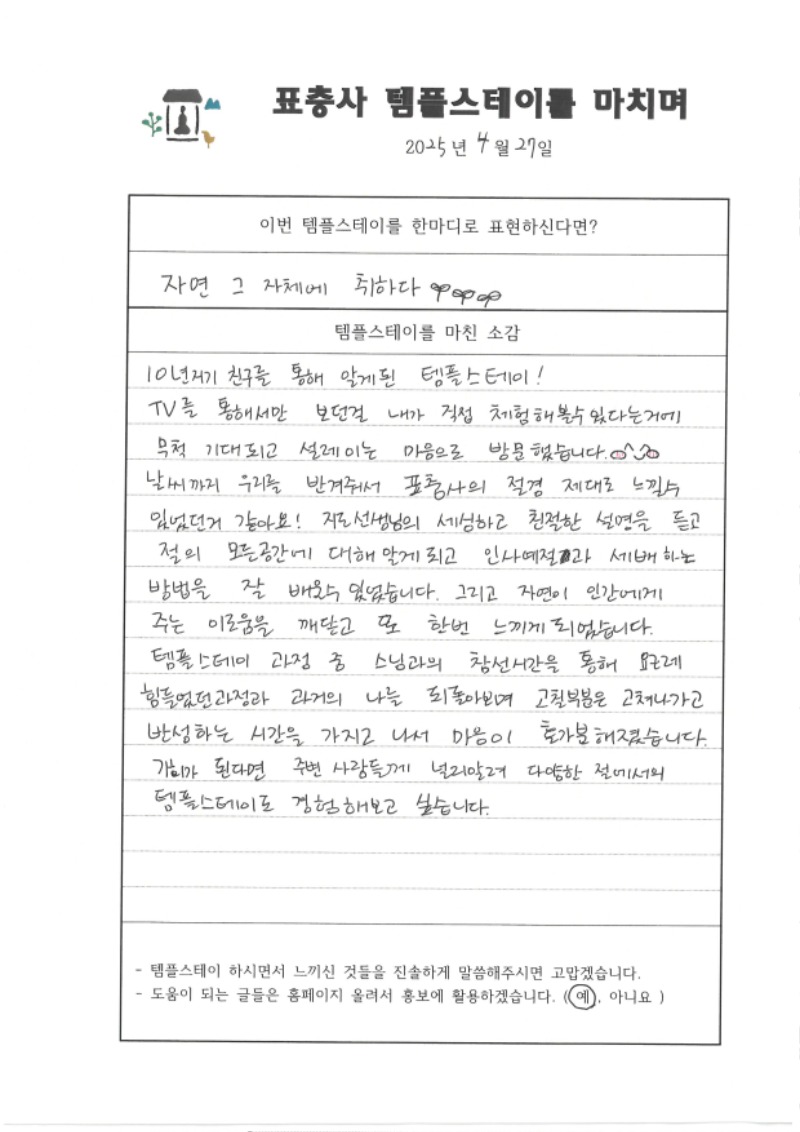 표충사 템플스테이를 마치며
2025년 4월 27일
이번 템플스테이를 한마디로 표현하신다면?
자연 그 자체에 취하다
템플스테이를 마친 소감
10년지기 친구를 통해 알게된 템플스테이!
TV를 통해서만 보던걸 내가 직접 체험해볼수있다는거에
무척 기대되고 설레이는 마음으로 방문했습니다.
날씨까지 우리를 반겨줘서 표충사의 절경 제대로 느낄수
있었던거 같아요! 지도선생님의 세심하고 친절한 설명을 듣고
절의 모든공간에 대해 알게되고 인사예절과 세배하는
방법을 잘 배울수 있었습니다. 그리고 자연이 인간에게
주는 이로움을 깨닫고 또 한번 느끼게 되었습니다.
템플스테이 과정 중 스님과의 참선시간을 통해 요근래
힘들었던과정과 과거의 나를 되돌아보며 고칠부분은 고쳐나가고
반성하는 시간을 가지고 나서 마음이 홀가분해졌습니다.
기회가 된다면 주변 사람들께 널리알려 다양한 절에서의
템플스테이도 경험해보고 싶습니다.
- 템플스테이 하시면서 느끼신 것들을 진솔하게 말씀해주시면 고맙겠습니다.
- 도움이 되는 글들은 홈페이지 올려서 홍보에 활용하겠습니다. (예, 아니요 )